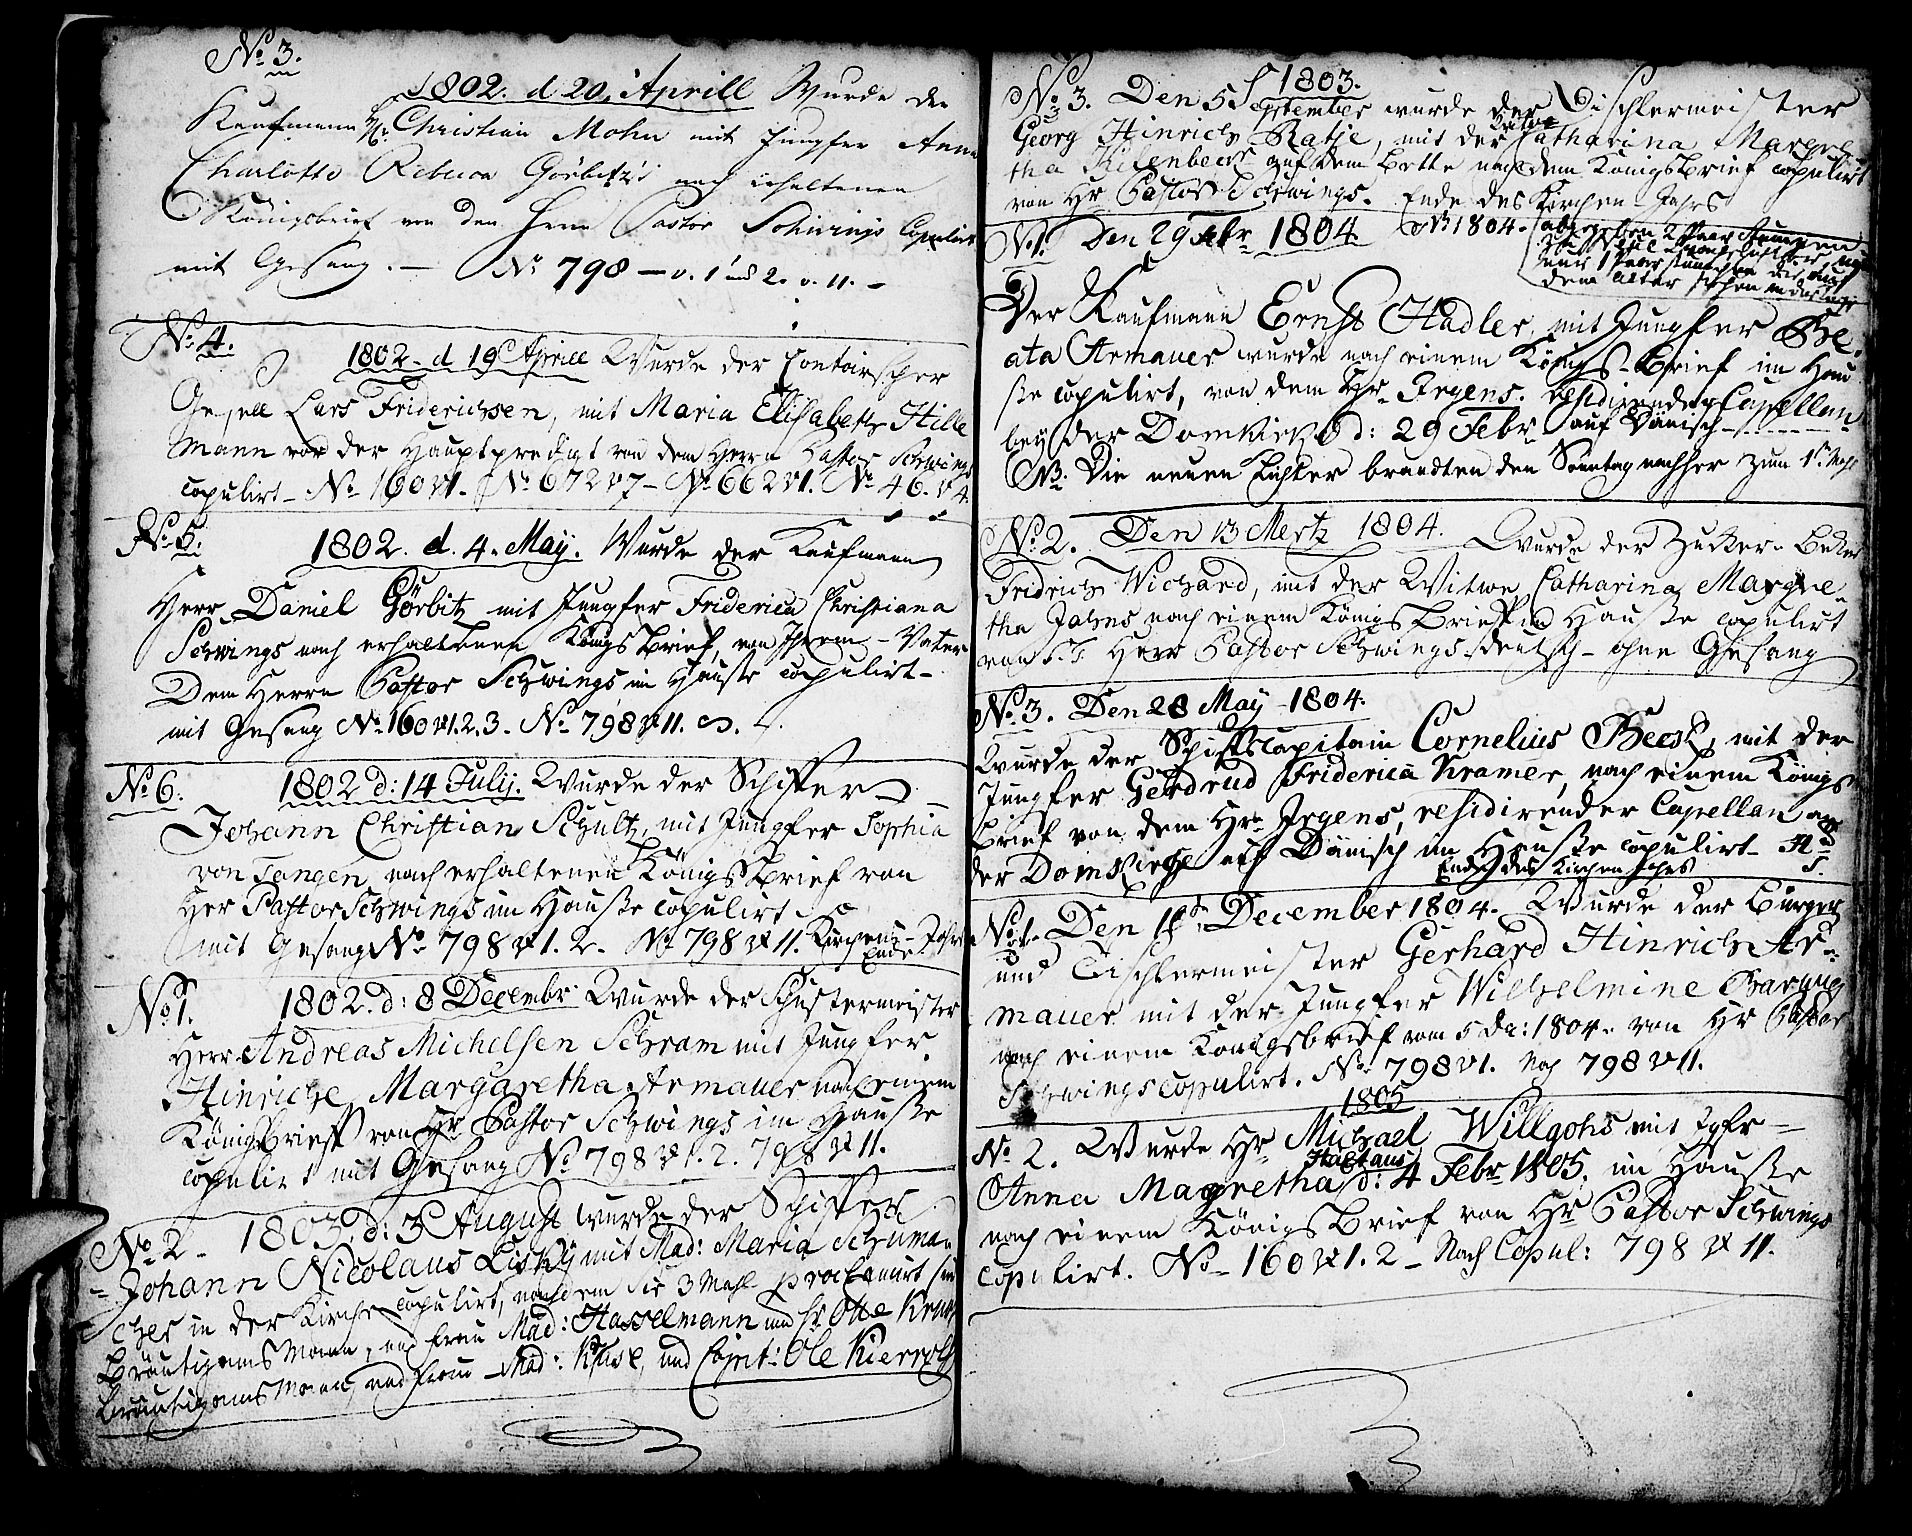 No 3.
1802. d 20. Aprill Wurde der
Kaufmann Hr. Christian Mohn mit Jungfer Anna
Charlotte Rebecca Görbitz nach erhaltenen
Königsbrief von den Herrn Pastor Schwings Copulirt
mit Gesang. — No 798 — v. 1 und 2. v. 11. —
No. 4.
1802. d 19 Aprill Wurde der
Gesell Lars Friderichsen, mit Maria Elisabeth Hille
mann vor der Hauptpredigt von dem Herrn Pastor Schwings
copulirt — No 160 v 1. No 672 v 7 — No 662 v 1. No 46. v 4
No. 5.
1802. d. 4. May. Wurde der Kaufmann
Herr Daniel Görbitz mit Jungfer Friderica Christiana
Schwings nach erhaltenen Königs Brief, von Ihrem Vater
Dem Herrn Pastor Schwings im Hause copulirt —
mit Gesang No 160 v 1. 2. 3. No 798 v 11.
No 6.
1802 d: 14 Julij. Wurde der Schiffer
Johann Christian Schultz, mit Jungfer Sophia
von Tangen nach erhaltenen Königs Brief von
Her Pastor Schwings im Hausse copulirt
mit Gesang No 798 v 1. 2. No 798 v 11. Kirchen-Jahrs
Ende
No 1.
1802. d: 8 Decembr. Wurde der Schustermeister
Herr Andreas Michelsen Schram mit Jungfer
Hinriche Margaretha Armauer nach einem
Königs Brieff von Hr Pastor Schwings im Hausse
copulirt mit Gesang No 798 v 1. 2. 798 v 11.
No 2 — 1803. d: 3 August wurde der Schiffer
Johann Nicolaus Lisky mit Mad: Maria Schuma-
cher in der Kirche copulirt, nachdem Sie 3 Mahl proclamirt sind
Bräutigams Mann, und Frau Mad: Hasselmann und Hr Otte
Bräutigams Mann, und Frau Mad: Kruse, und Capit: Ole Kierrolf
1803.
No. 3. Den 5 September wurde der Tischlermeister
Georg Hinrich Ratje, mit der Witwe Catharina Margre-
tha auf dem Bette nach dem Königs Brief copulirt
von Hr Pastor Schwings. Ende des Kirchen Jahrs
No 1. Den 29 Febr 1804. NB 1804.
abgegeben 2 Paar
dem Alter
Der Kaufmann Ernst Hadler, mit Jungfer Be-
ata Armauer wurde nach einem Königs-Brief im Hau
sse copulirt, von dem Hr. Irgens. residirender Capellan
bey der Domkirke d: 29 Febr auf Dänisch
NB. Die neuen Lichter brandten den Sonntag nachher zum 1. Mahl
No 2. Den 13 Mertz 1804. Wurde der Zucker-Becker
Fridrich Wichard, mit der Witwe Catharina Margre-
tha Jahns nach einem Königs Brieff im Hausse copulirt
von Herr Pastor Schwings deutsch — ohne Gesang
No 3. Den 28 May 1804.
Wurde der Schiffscapitain Cornelius Beesk, mit der
Jungfer Gerdrud Friderica Kramer, nach einem Königs
Brief von dem Hr. Irgens, residirender Capellan an
der Domkirche auf Dänisch im Hausse copulirt —
Ende des Kirchen Jahrs
No 1. Den December 1804. Wurde der Bürger
und Tischlermeister Gerhard Hinrich Ar-
mauer mit der Jungfer Wilhelmine
nach einem Königsbrief vom 5 Dec: 1804. von Hr Pastor
Schwings copulirt. No 798 v 1. Noch 798 v 11.
1805
No 2. Wurde Hr Michael Willgohs mit Jgfr
Anna Magretha Haltaus d: 4 Febr 1805, im Hausse
nach einem Königs Brief von Hr Pastor Schwings
copulirt. No 160 v 1. 2 — Nach Copul: 798 v 11.